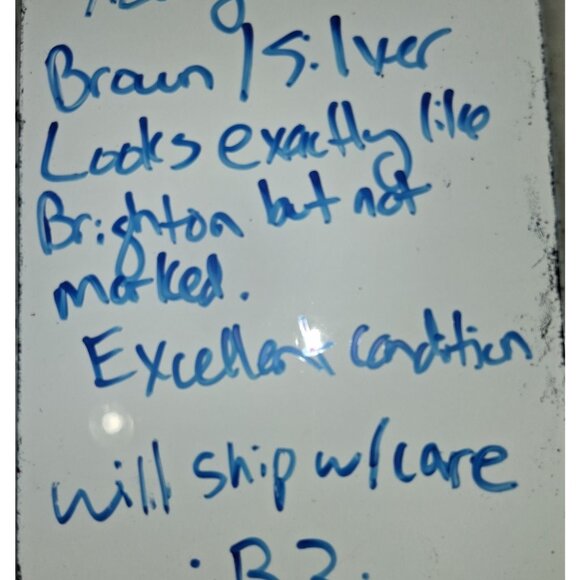 Brown / Silver
Looks exactly like
Brighton but not
marked.
Excellent condition
will ship w/care
. B2.